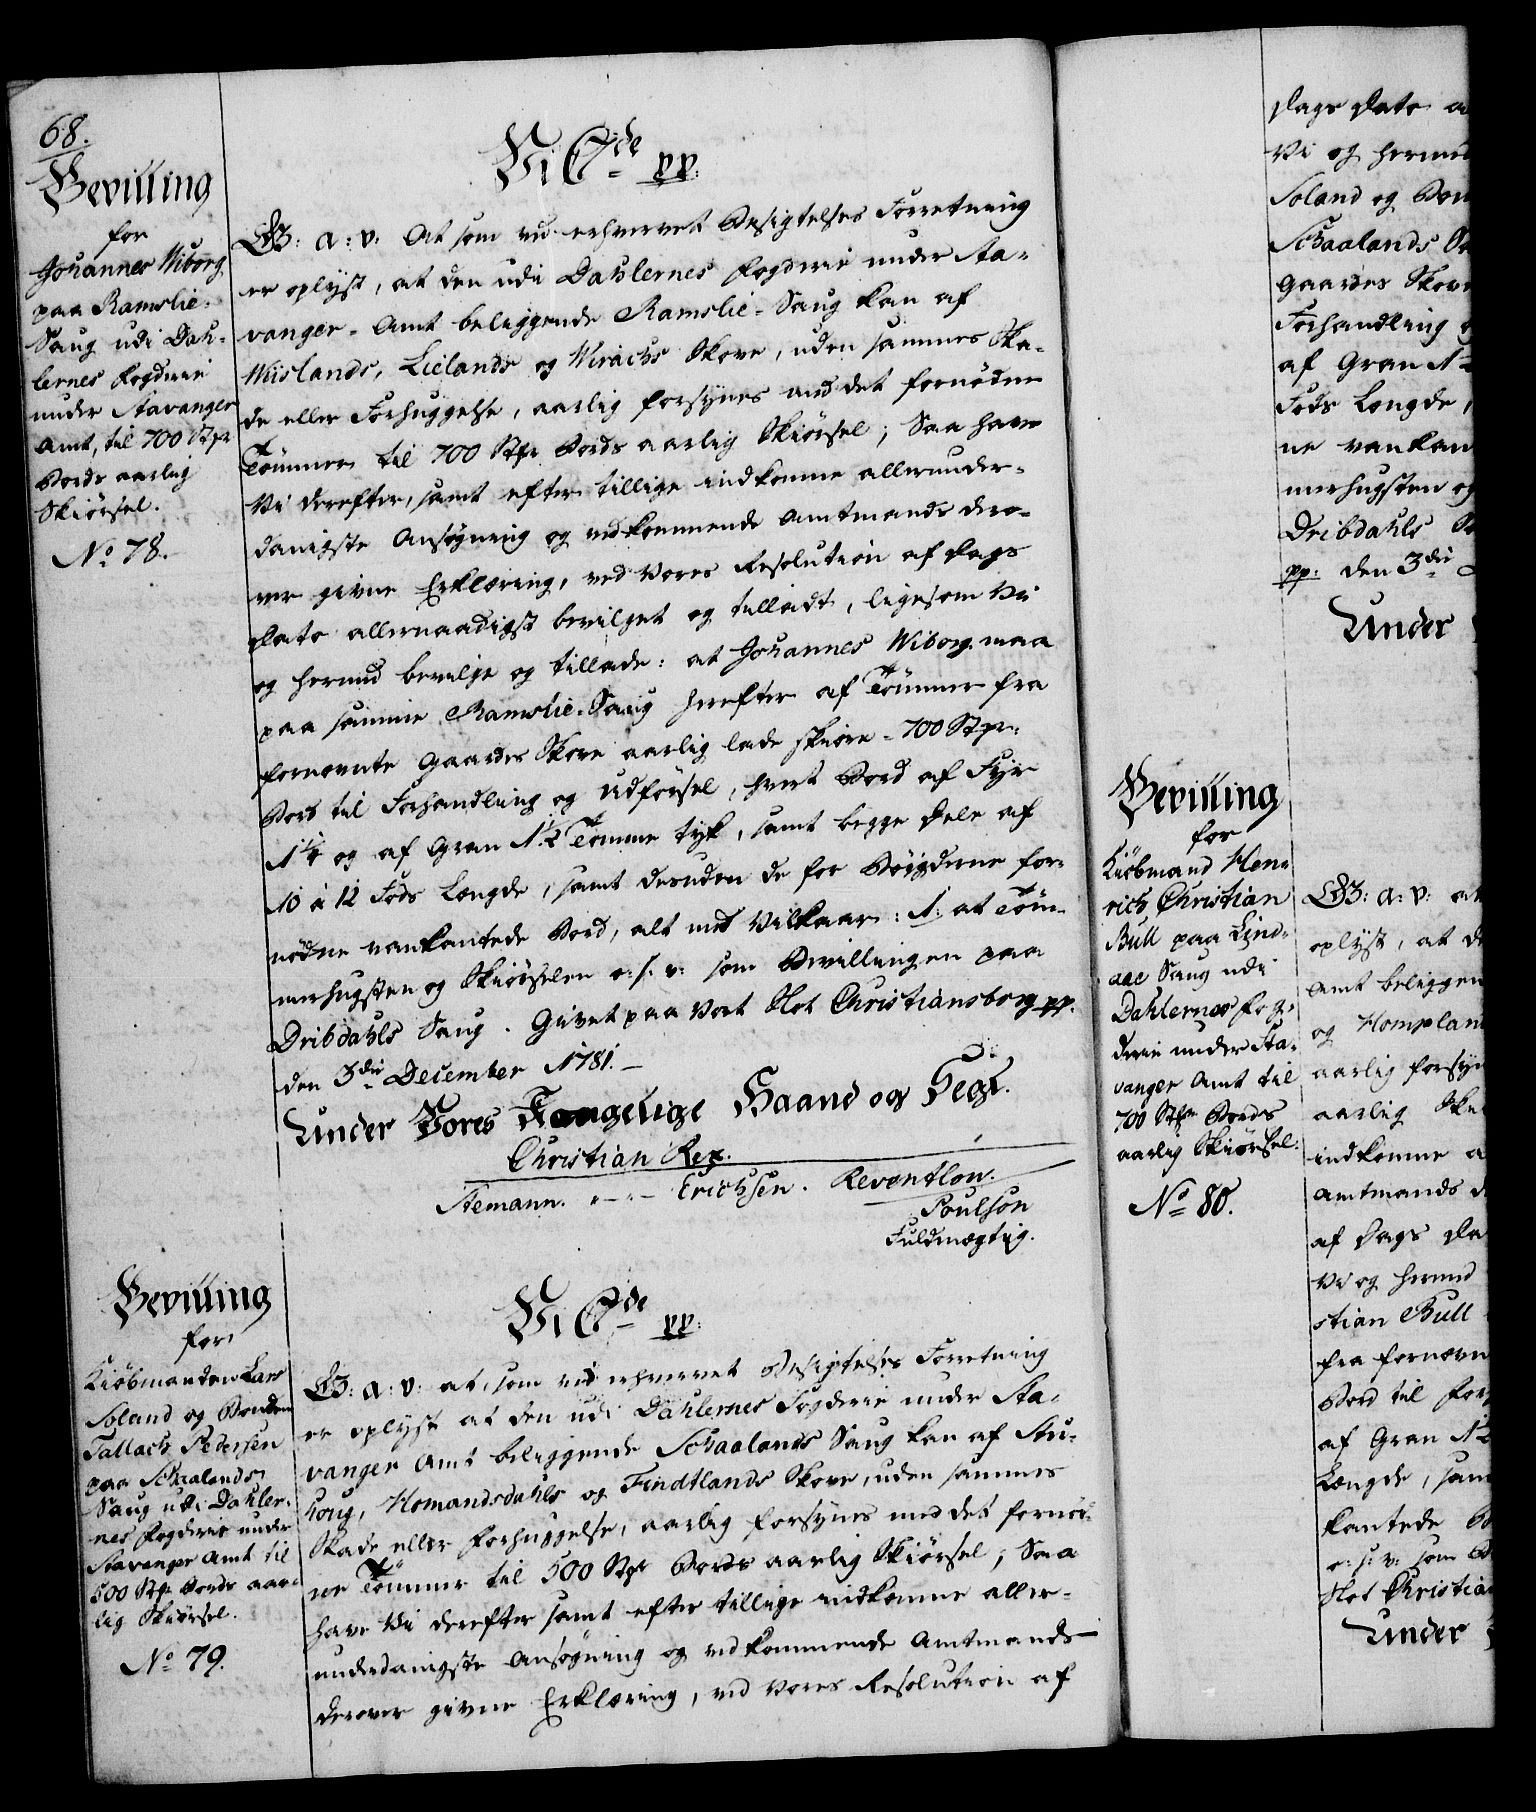 68.
Bevilling
for
Johannes Wiborg
paa Ramslie-
Saug udi Dah-
lernes Fogderie
under Stavanger
Amt, til 700 Stpr
Bords aarlig
Skiørsel.
No 78.
Vi C 7de pp:
G3: a: v: At som ved erhvervet Besigtelses Forretning
er oplyst, at den udi Dahlernes Fogderie under Sta-
vanger-Amt beliggende Ramslie-Saug kan af
Wiislands, Lielands og Wirachs Skove, uden sammes Ska-
de eller Forhuggelse, aarlig forsynes med det fornødne
Tømmer til 700 Stpr Bords aarlig Skiørsel; Saa have
Vi derefter, samt efter tillige indkomne allerunder-
danigste Ansøgning og vedkommende Amtmands dero-
ver givne Erklæring, ved Vores Resolution af Dags
Dato allernaadigst bevilget og tilladt, ligesom Vi
og hermed bevilge og tillade: at Johannes Wiborg maa
paa samme Ramslie-Saug herefter af Tømmer fra
fornevnte Gaardes Skove aarlig lade skiøre 700 Stpr:
Bord til Forhandling og Udførsel, hvert Bord af Fyr
1¼ og af Gran 1½ Tomme tyk, samt begge Dele af
10 à 12 Fods Længde, samt desuden de for Bøigderne for-
nødne vankantede Bord, alt med Vilkaar: 1: at Tøm-
merhugsten og Skiørselen o: s: v: som Bevillingen paa
Dribdahls Saug. Givet paa Vort Slot Christiansborg pp.
den 3die December 1781.
Under Vores Kongelige Haand og Segl.
Christian Rex.
Stemann. - - - Erichsen. Reventlow.
Poulson
Fuldmægtig.
Bevilling
for
Kiøbmanden Lars
Soland og Bonden
Tallach Pedersen
paa Schaalands
Saug udi Dahler-
nes Fogderie under
Stavanger Amt til
500 Stpr Bords aar-
lig Skiørsel.
No 79.
Vi C 7de pp:
G3: a: v: at, som ved erhvervet Besigtelses Forretning
er oplyst at den udi Dahlernes Fogderie under Sta-
vanger Amt beliggende Schaalands Saug kan af Stu-
houg, Homandsdahls og Findtlands Skove, uden sammes
Skade eller Forhuggelse, aarlig forsynes med det fornød-
ne Tømmer til 500 Stpr Bords aarlig Skiørsel; Saa
have Vi derefter samt efter tillige indkomne aller-
underdanigste Ansøgning og vedkommende Amtmands
derover givne Erklæring, ved Vores Resolution af
Dags Dato a
Vi og herme
Soland og Bon
Schaalands S
Gaardes Skove
Forhandling o
af Gran 1½
Fods Længde,
ne vankan
merhugsten og
Dribdahls S
pp: den 3die
Under
Bevilling
for
Kiøbmand Hen-
rich Christian
Bull paa Lind-
aae Saug udi
Dahlernes Fog-
derie under Sta-
vanger Amt til
700 Stpr Bords
aarlig Skiørsel.
No 80.
G3: a: v: at
oplyst, at de
Amt beliggen
og Homplan
aarlig forsyn
aarlig Ski
indkomne a
Amtmands d
af Dags Da
Vi og hermed
stian Bull
fra fornevn
Bord til For
af Gran 1½
Længde, sam
kantede B
o: s: v: som B
Slot Christia
Under